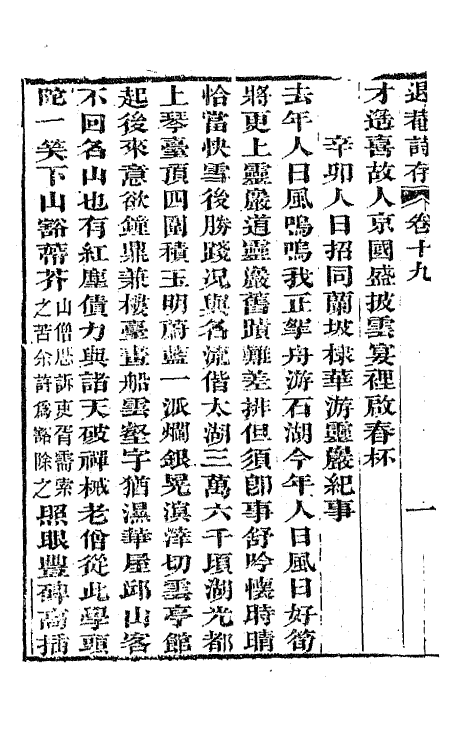 退菴詩存 卷十九 一
才逃喜故人京國盛披雲宴裡啟春杯
辛卯人日招同蘭坡棣華游靈巖紀事
去年人日風鳴鳴我正犖舟游石湖今年人日風日好筍
將更上靈巖道靈巖舊蹟難差排但須卽事舒吟懷時晴
恰當快雪後勝踐况與名流偕太湖三萬六千頃湖光都
上琴臺頂四圍積玉明蔚藍一派爛銀晃滇涬切雲亭館
起後來意欲鐘鼎兼樓臺畫船雲壑字猶濕華屋邱山客
不回名山也有紅塵債力與諸天破禪械老僧從此學頭
陀一笑下山豁蔕芥山僧思訴吏胥需索之苦余許爲豁除之照眼豐碑高插